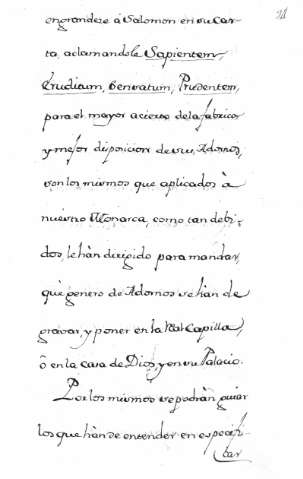 21
engrandeze à Salomon en su Car-
ta, aclamandole Sapientem,
Erudium, Sensatum, Prudentem,
para el mayor acierto de la fabrica
y mejor disposicion de sus Adornos,
son los mismos que aplicados à
nuestro Monarca, como tan debi-
dos, le hàn dirigido para mandar,
què genero de Adornos se hàn de
gravar, y poner en la Rl Capilla,
ò en la Casa de Dios, y en su Palacio.
Por los mismos se podràn guiar
los que hàn de entender en execu-
tar